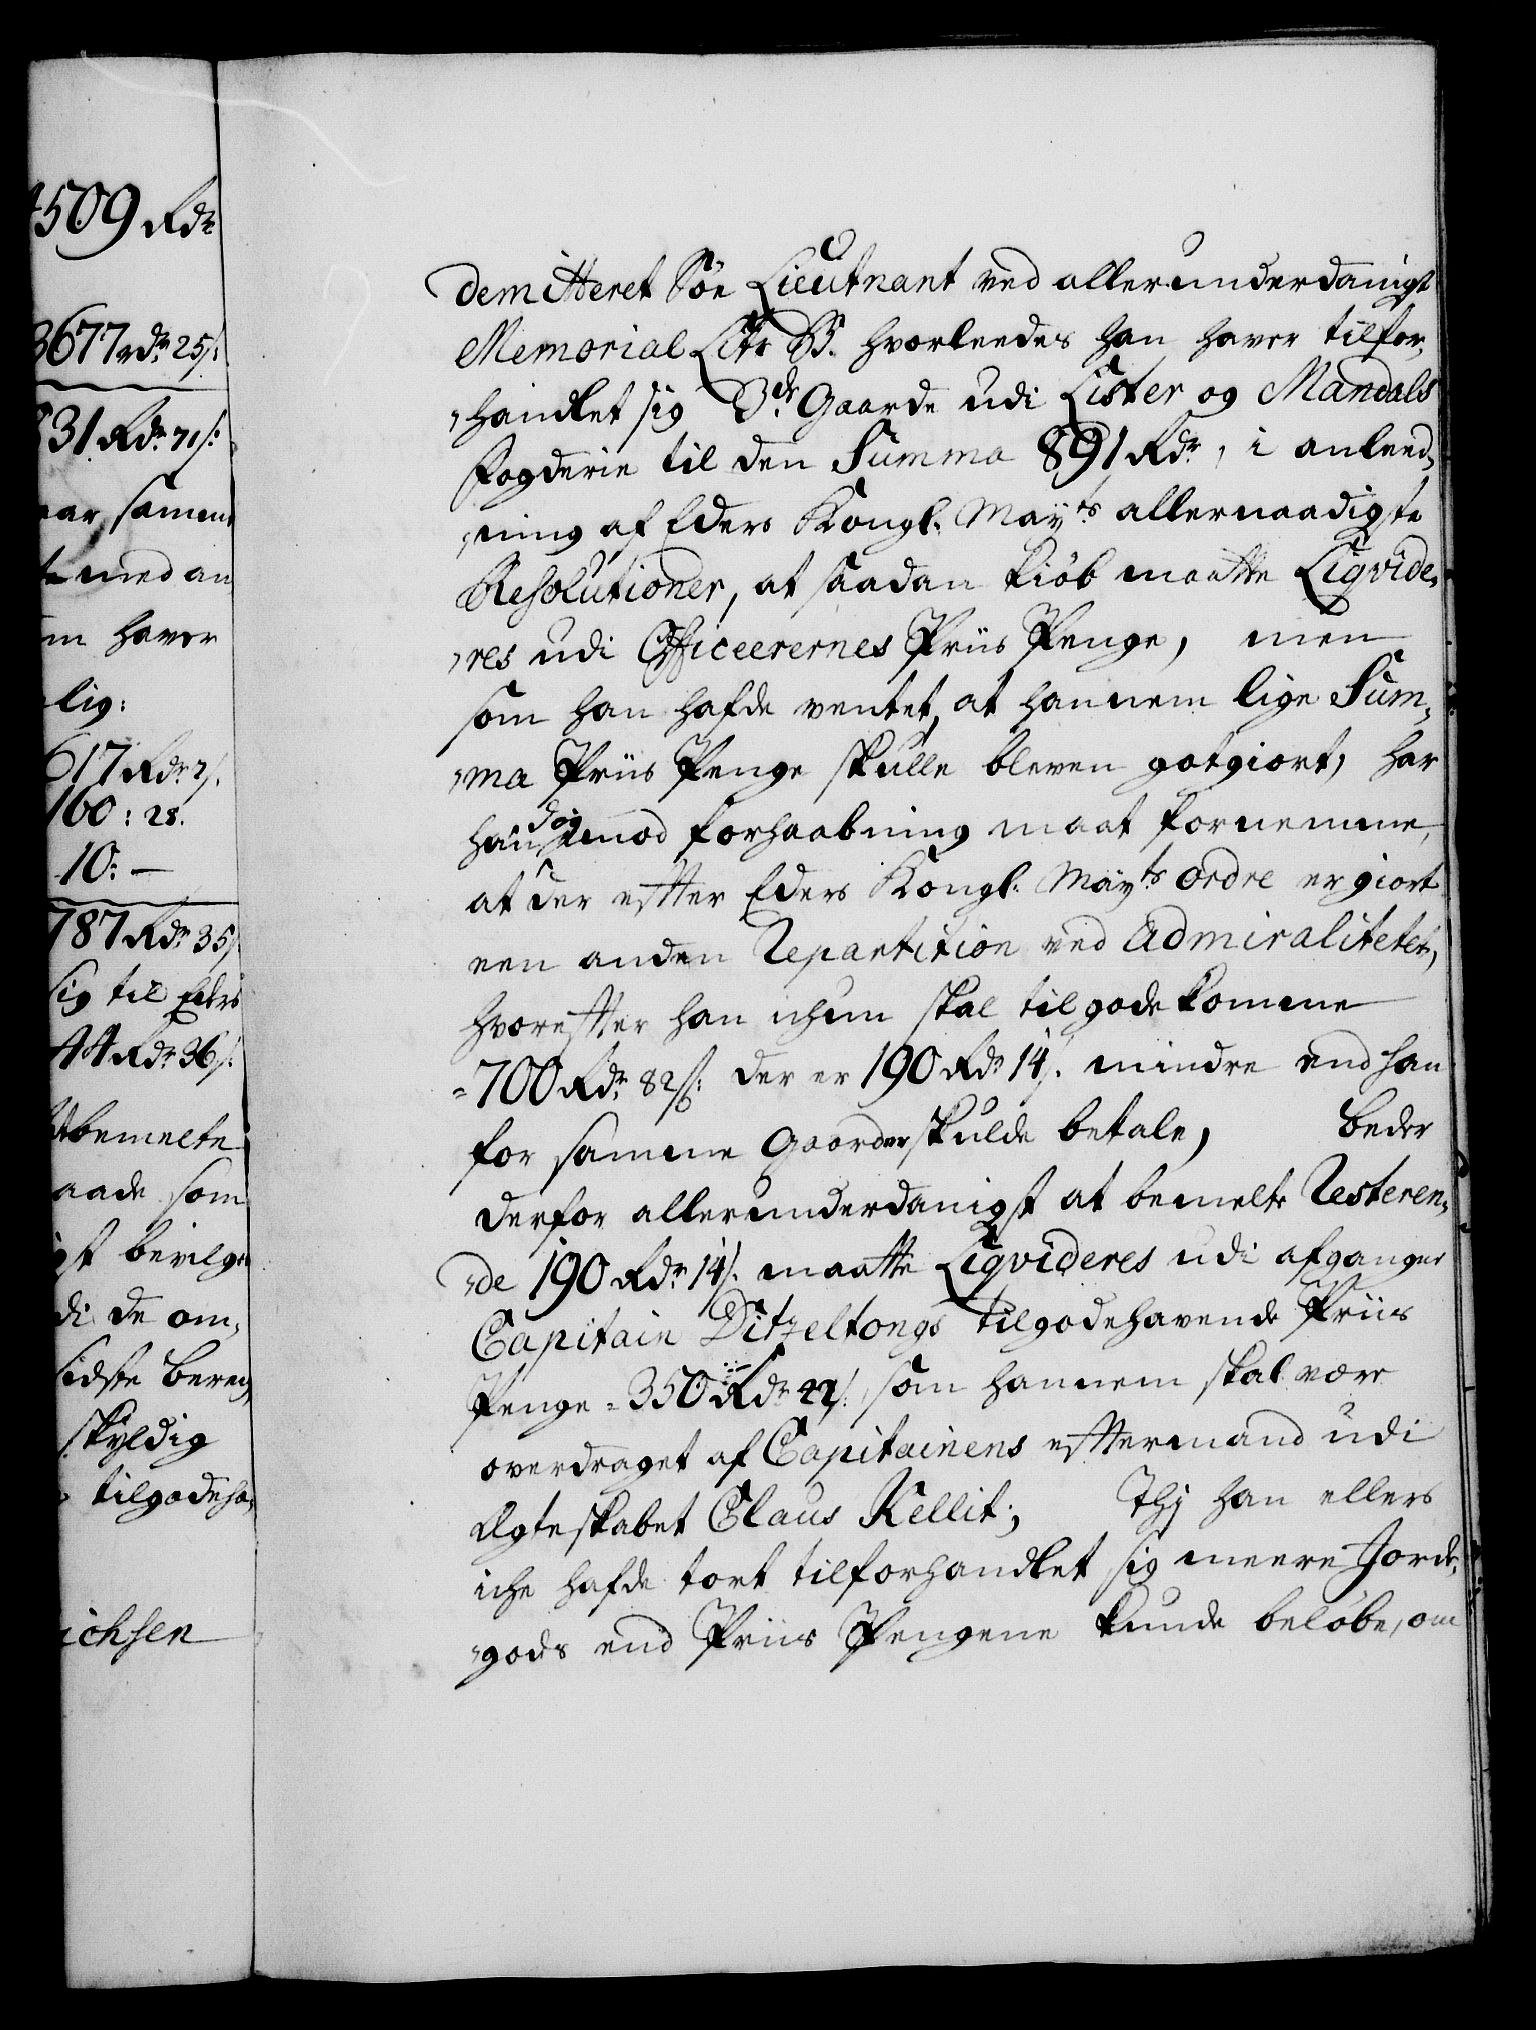 4509 Rdr
3677 rdr 25/:
831 Rdr 71/:
aar, samme
te med an
em haver
lig:
617 Rdr 7/.
160: 28.
10: —
787 Rdr 35/
sig til Eders
44 Rdr 36/:
bemelte
aade som
st bevilge
di de om„
sidste bereg
skyldig
tilgodeha„
ichsen
demitteret Söe Lieutnant ved allerunderdanigst
Memorial Litr B. hvorleedes han haver tilfor„
„handlet sig 3de Gaarde udi Lister og Mandals
fogderie til den Summa 891 Rdr, i anleed„
„ning af Eders Kongl. Mayts allernaadigste
Resolutioner, at saadan kiöb maatte Liqvide„
„res udi Officeerernes Priis Penge, men
som han hafde ventet, at hannem lige Sum„
„ma Priis Penge skulle bleven gotgiort, har
han dog imod forhaabning maat fornemme,
at der effter Eders Kongl. Mayts ordre er giort
een anden Repartition ved Admiralitetet,
hvoreffter han ichun skal tilgodekomme
=700 Rdr 82 s/: der er 190 Rdr 14/. mindre end han
for samme Gaarder skulde betale, beder
derfor allerunderdanigst at bemelte Resteren„
„de 190 Rdr 14/. maatte Liqvideres udi afgangne
Capitain Ditzeltongs tilgodehavende Priis
Penge = 350 Rdr 42/. som hannem skal være
overdraget af Capitainens efftermand udi
Ægteskabet Claus Kellit; Thj han ellers
iche hafde tort tilforhandlet sig meere Jorde„
„gods end Priis Pengene kunde belöbe, om